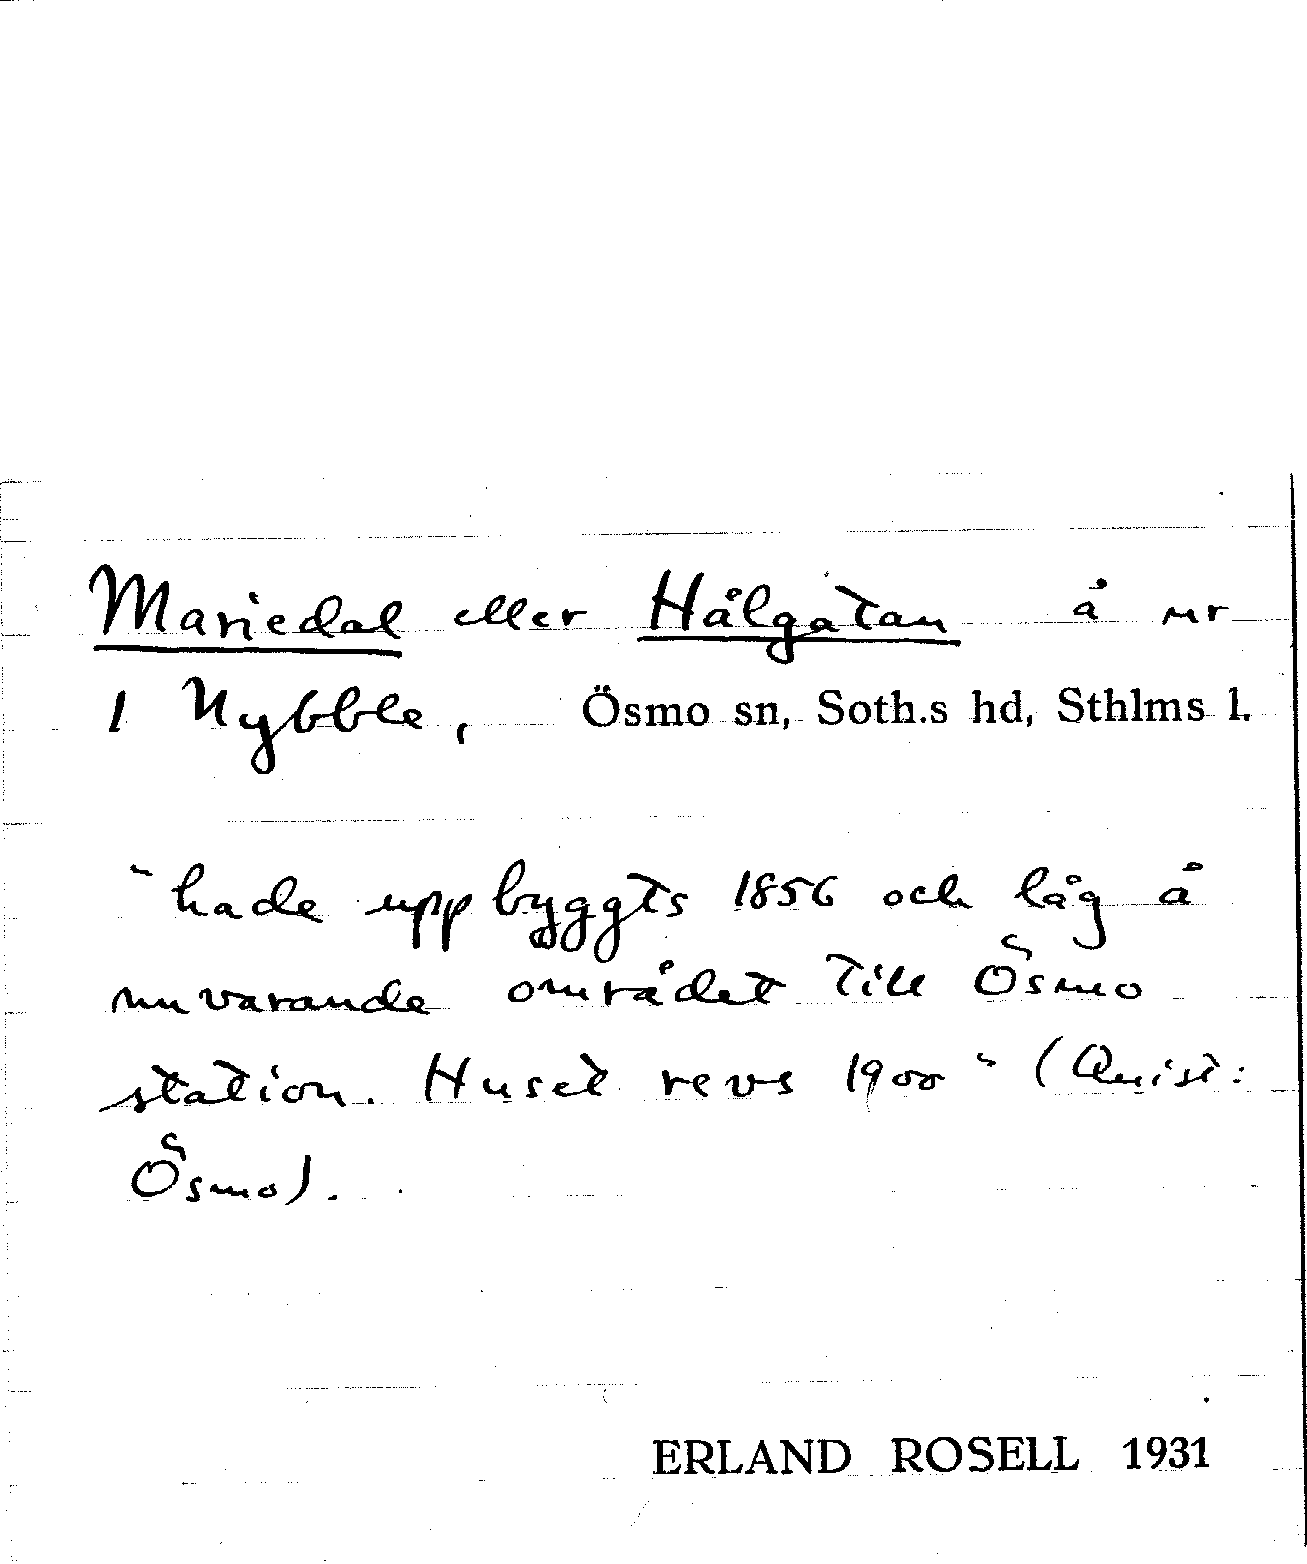 Mariedal eller Hålgatan å nr
1 Nybble, Ösmo sn, Soth.s hd, Sthlms l.
"hade uppbyggts 1856 och låg å
nuvarande området till Ösmo
station. Huset revs 1900" (Quist:
Ösmo).
ERLAND ROSELL 1931